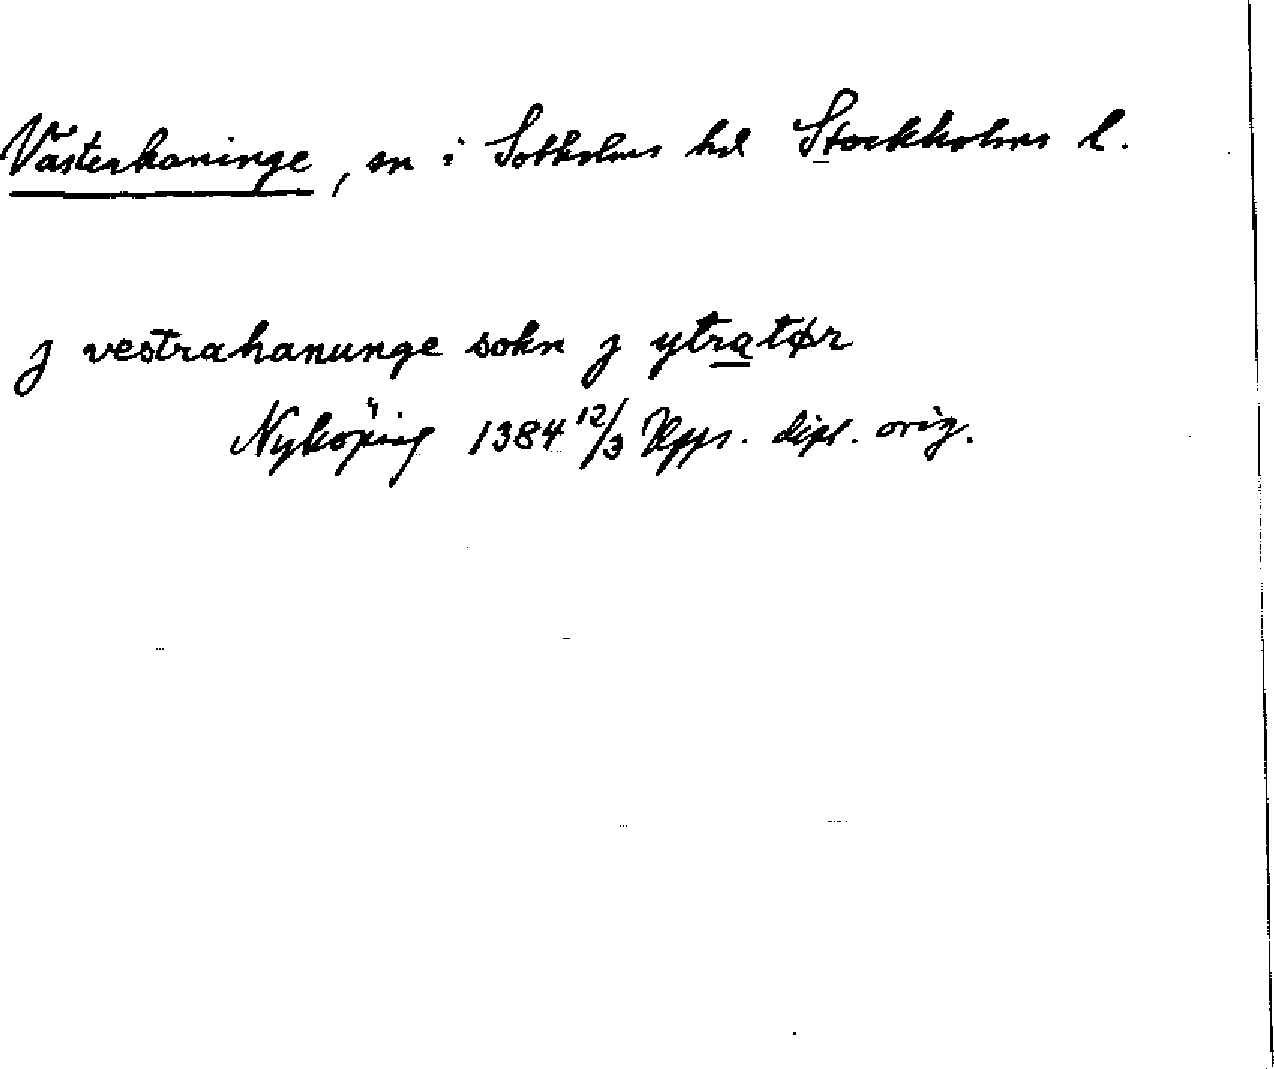 Västerhaninge, sn i Sotholms hd Stockholms l.
j vestrahanunge sokn j ytratør
Nyköping 1384 12/3 Upps. dipl. orig.